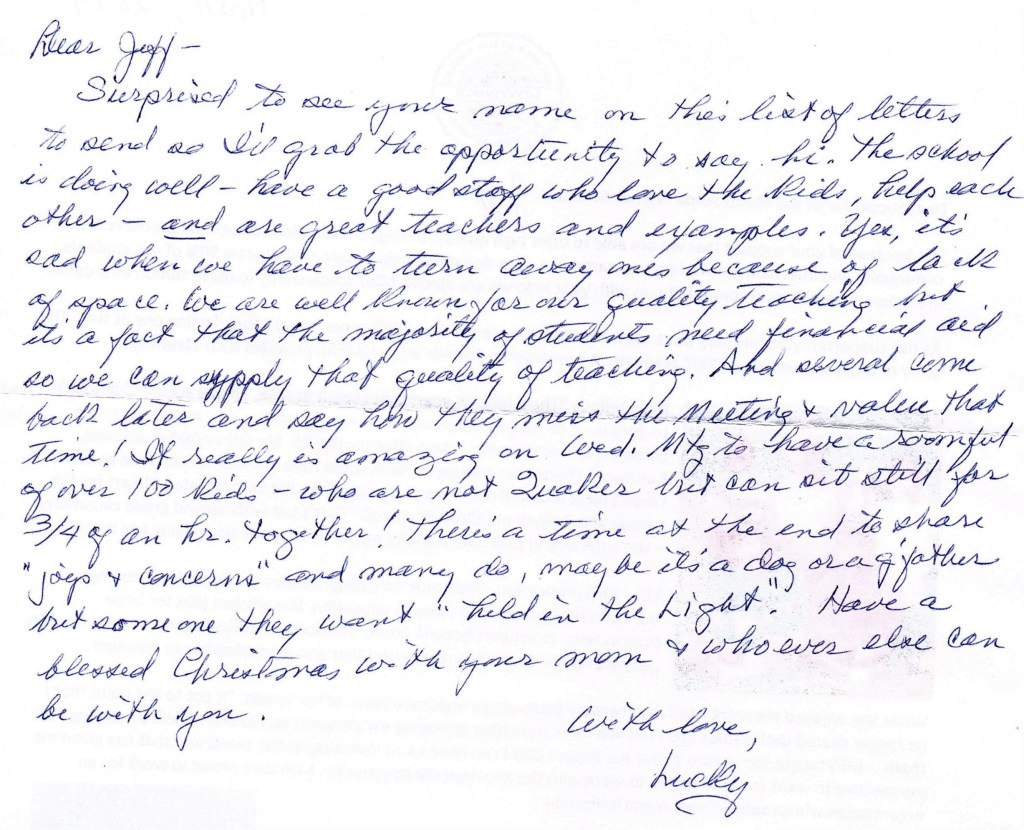 Dear Jeff –
Surprised to see your name on this list of letters
to send so I'll grab the opportunity to say hi. The school
is doing well – have a good staff who love the kids, help each
other – and are great teachers and examples. Yes, it's
sad when we have to turn away ones because of lack
of space. We are well known for our quality teaching but
it's a fact that the majority of students need financial aid
so we can supply that quality of teaching. And several come
back later and say how they miss the Meeting & value that
time! It really is amazing on Wed. Mtg to have a roomful
of over 100 kids – who are not Quaker but can sit still for
3/4 of an hr. together! There's a time at the end to share
"joys & concerns" and many do, maybe it's a dog or a gfather
but someone they want "held in the Light." Have a
blessed Christmas with your mom & whoever else can
be with you.
With love,
Lucky